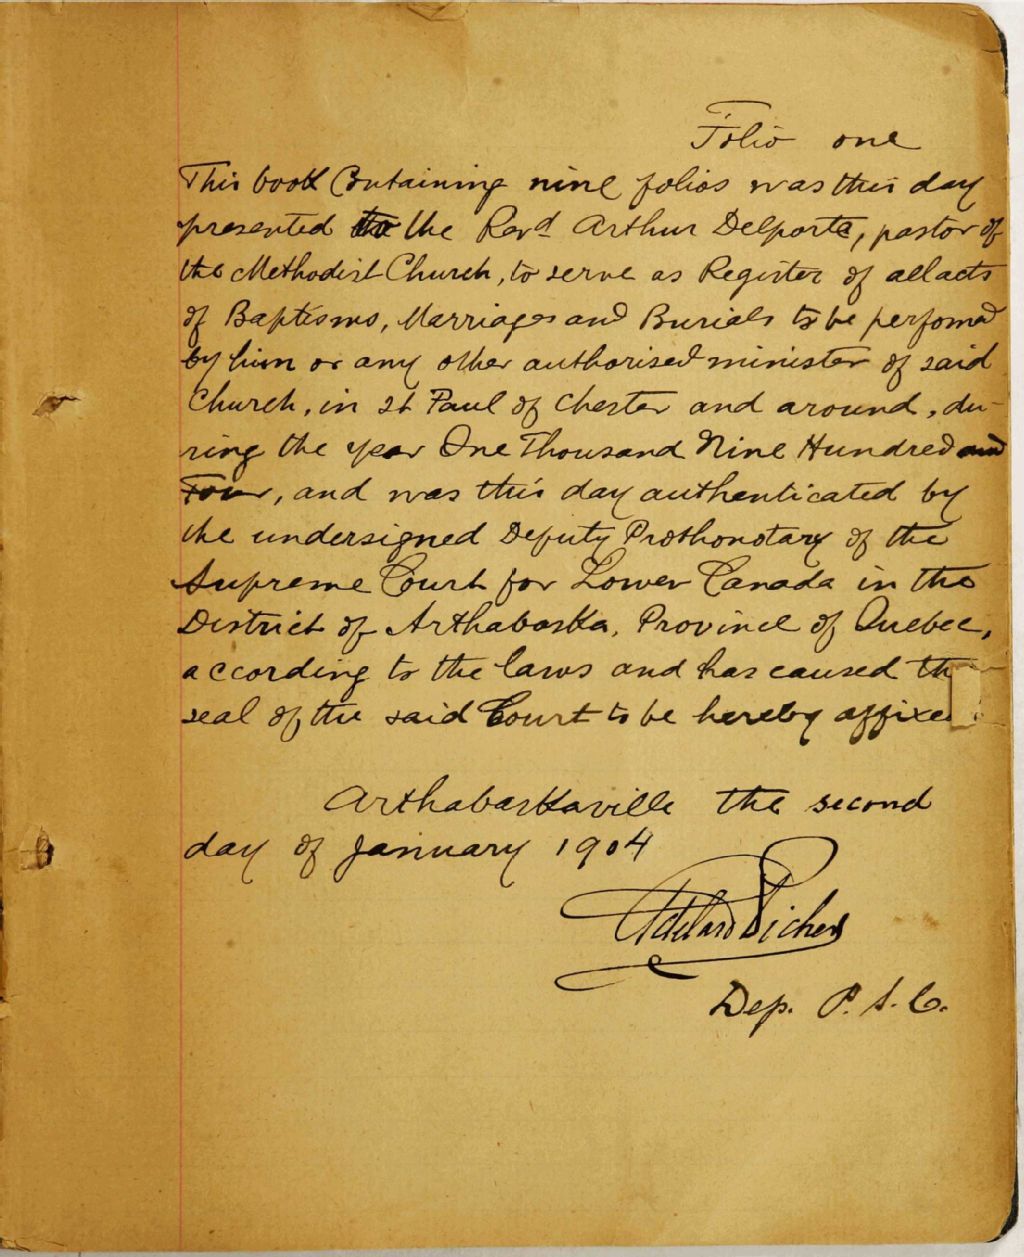 Folio one
This book Containing nine folios was this day
presented to the Revd Arthur Delporte, pastor of
the Methodist Church, to serve as Register of all acts
of Baptisms, Marriages and Burials to be perfomed
by him or any other authorised minister of said
Church, in St Paul of Chester and around, du-
ring the year One Thousand Nine Hundred and
Four, and was this day authenticated by
the undersigned Deputy Prothonotary of the
Supreme Court for Lower Canada in the
District of Arthabaska, Province of Quebec,
according to the laws and has caused the
seal of the said Court to be hereby affixed
Arthabaskaville the second
day of January 1904
Adelard Picher
Dep. P. S. C.